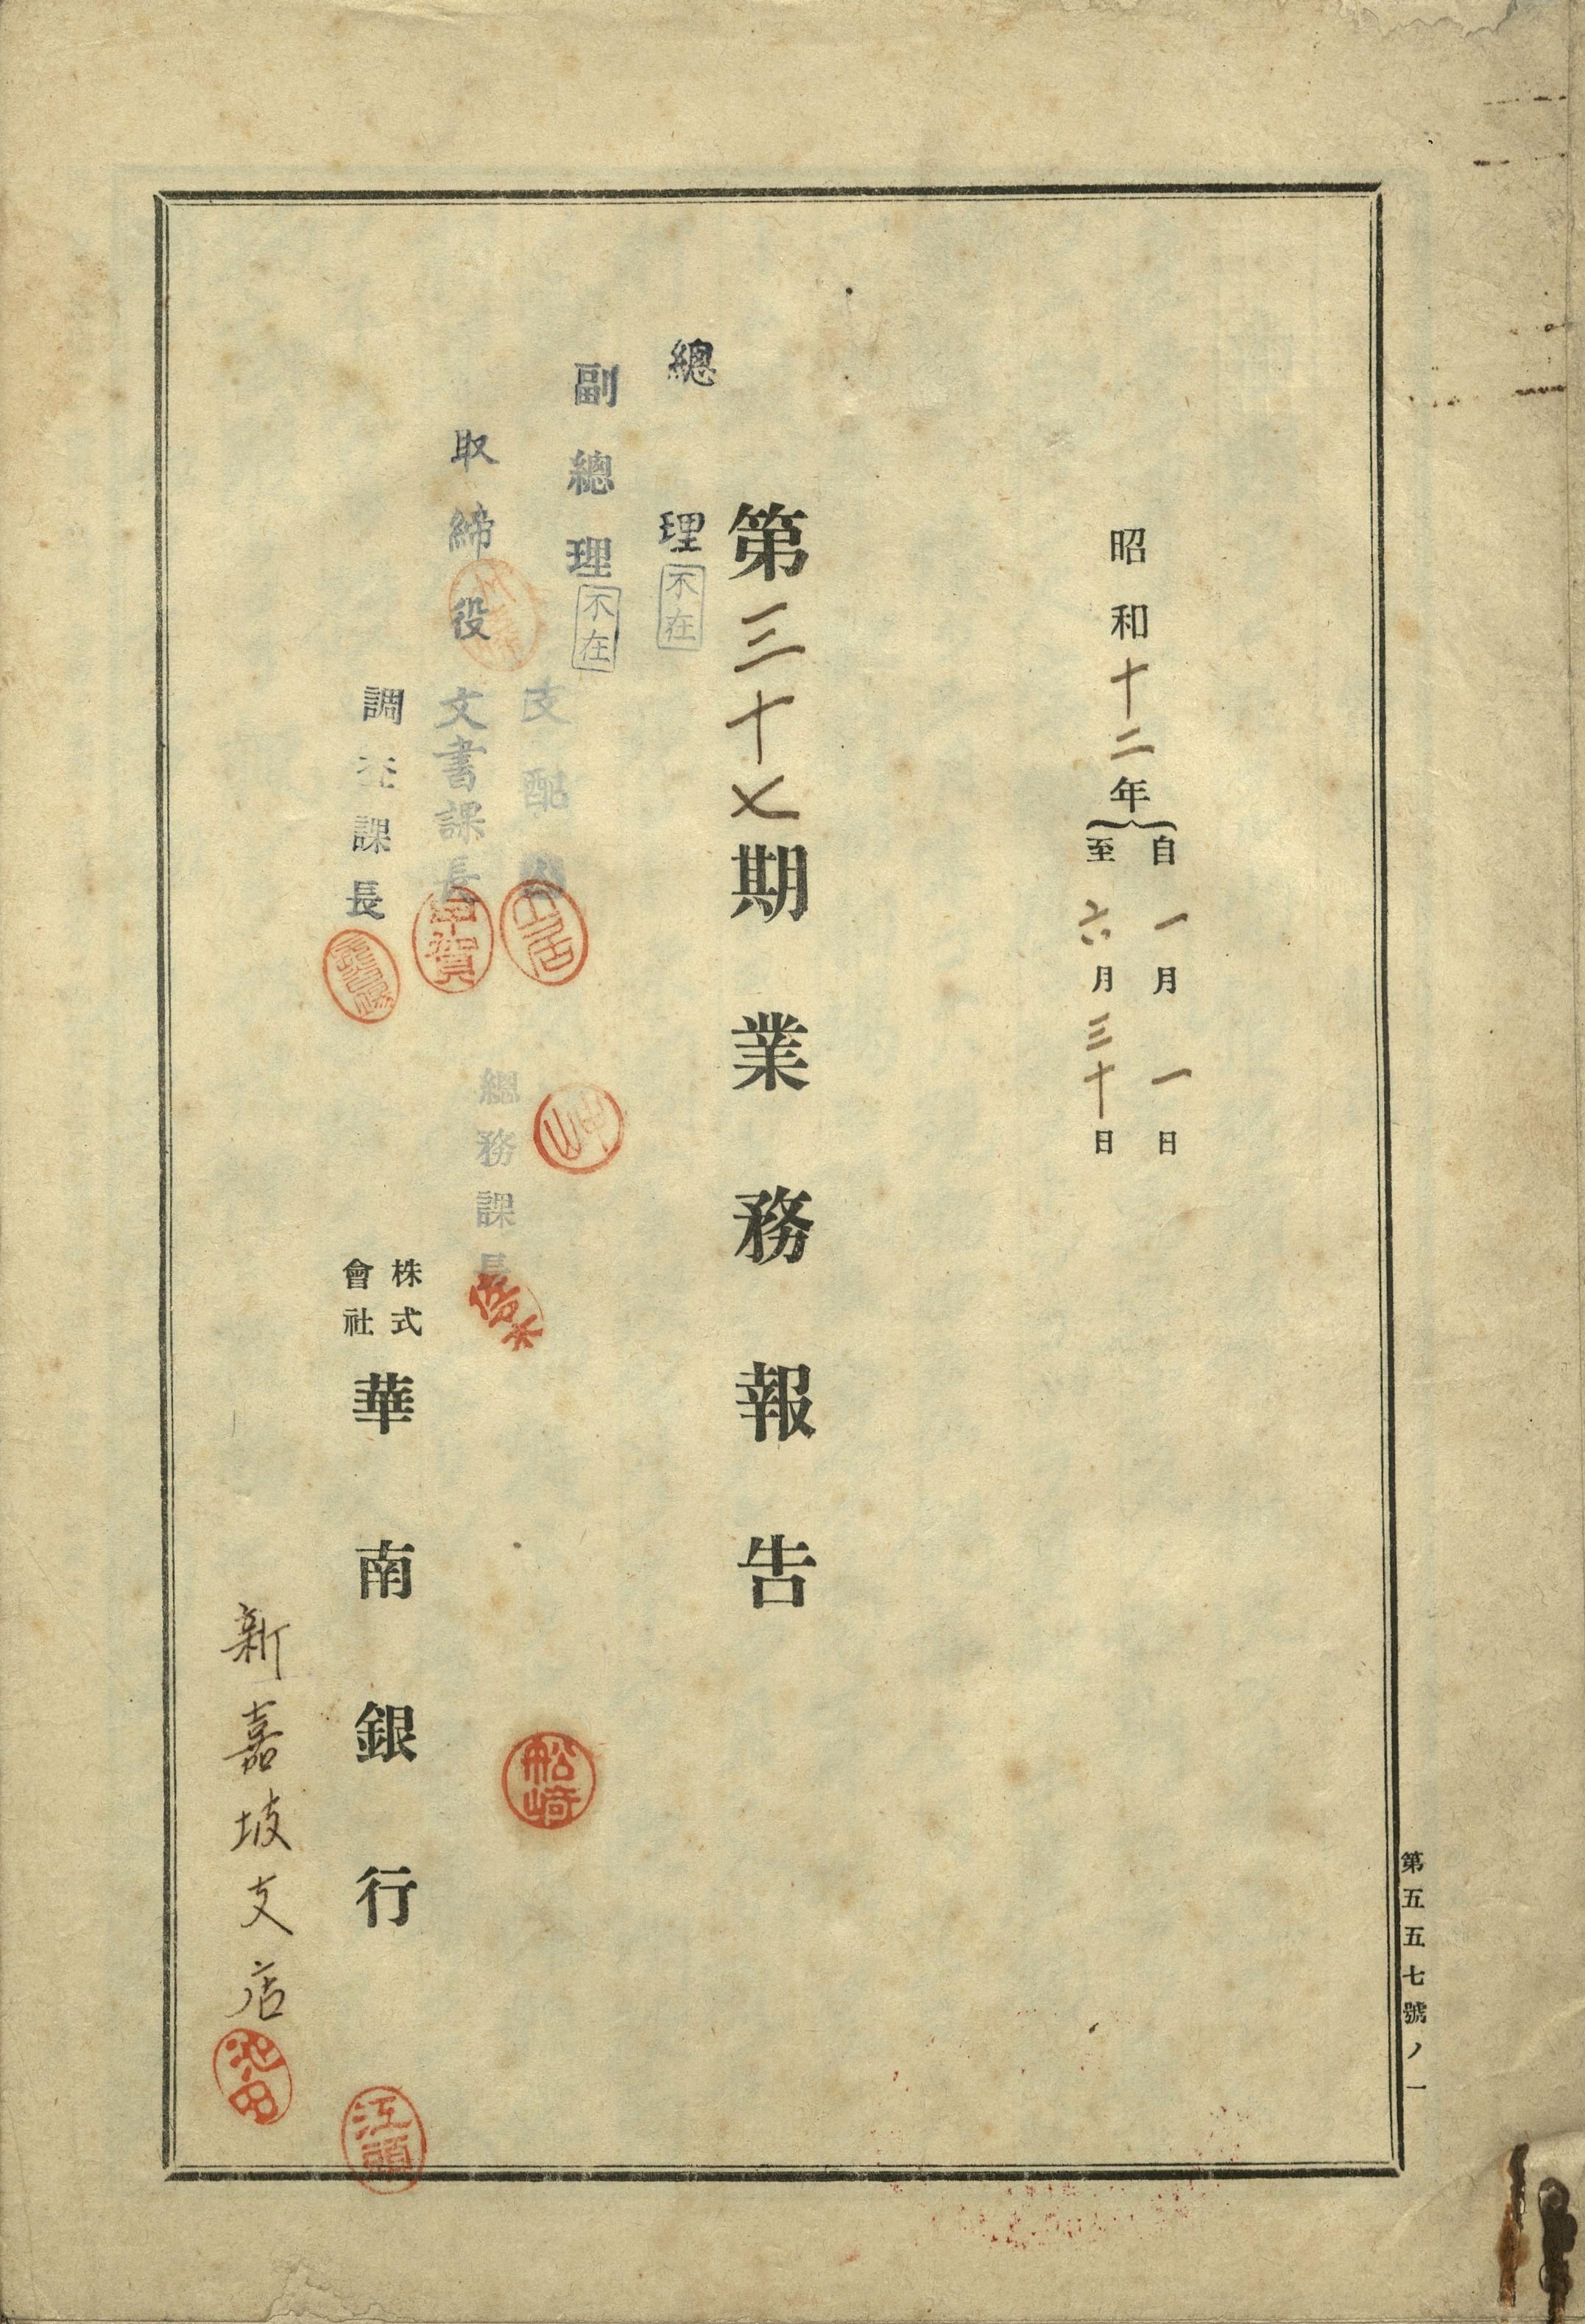 第五五七號ノ一
昭和十二年
自一月一日
至六月三十日
第三十七期業務報告
總理
不在
副總理
不在
取締役
支配人
文書課長
甲賀
調査課長
總務課長
株式
會社
華南銀行
船崎
新嘉坡支店
池田
江頭